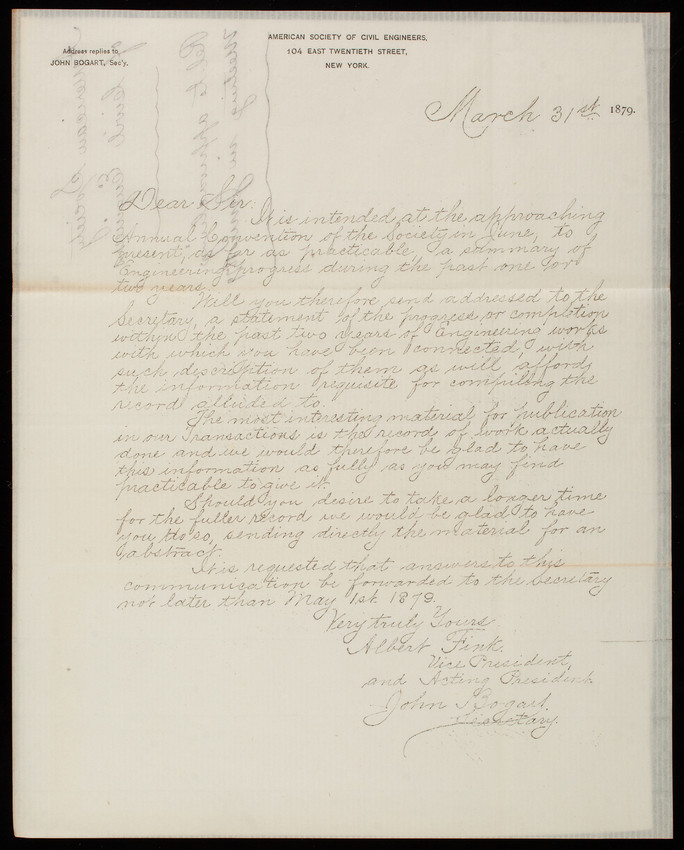 AMERICAN SOCIETY OF CIVIL ENGINEERS,
104 EAST TWENTIETH STREET,
NEW YORK.
Address replies to
JOHN BOGART, Sec'y.
March 31st 1879.
Dear Sir:
It is intended at the approaching
Annual Convention of the Society in June, to
present, as far as practicable, a summary of
Engineering progress during the past one or
two years.
Will you therefore, send addressed to the
Secretary, a statement of the progress or completion
within the past two years of Engineering works
with which you have been connected, with
such description of them as will afford
the information requisite for compiling the
record alluded to.
The most interesting material for publication
in our Transactions is the record of work actually
done and we would therefore be glad to have
this information as fully as you may find
practicable to give it.
Should you desire to take a longer time
for the fuller record we would be glad to have
you do so, sending directly the material for an
abstract.
It is requested that answers to this
communication be forwarded to the Secretary
not later than May 1st. 1879.
Very truly Yours
Albert Fink.
Vice President,
and Acting President.
John Bogart.
Secretary.